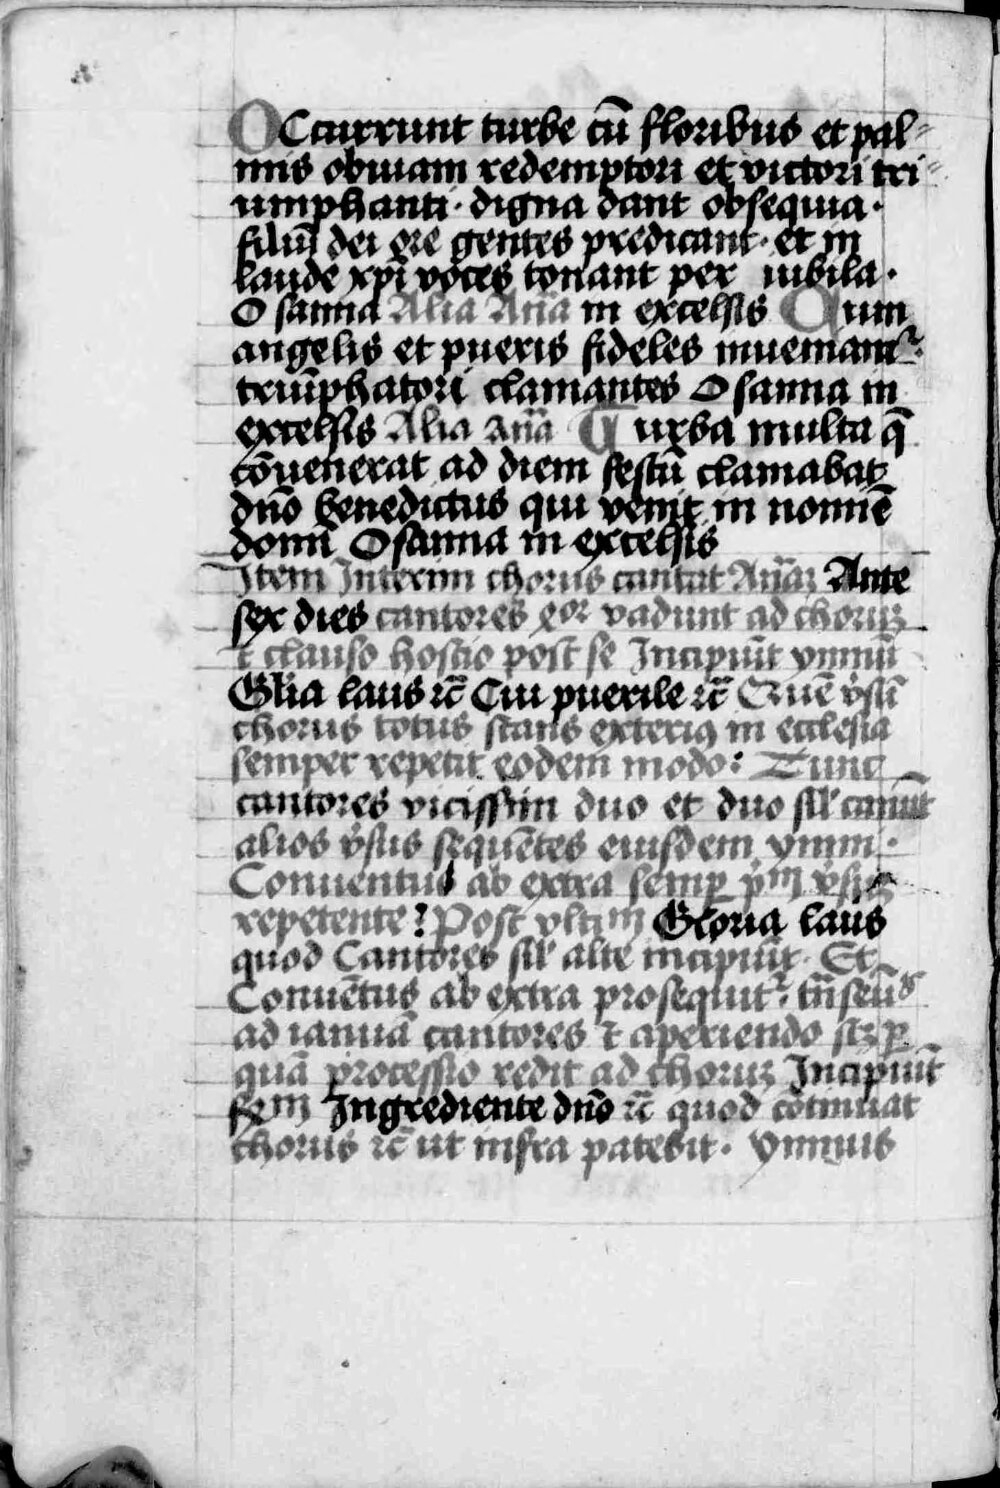 OCcurrunt turbe cū floribus et pal-
mis obuiam redemptori et victori tri-
umphanti · digna dant obsequia ·
filiū dei ore gentes predicant · et in
laude xp̄i voces tonant per iubila ·
O sanna Alia Ana̅ in excelsis Cum
angelis et pueris fideles inueniam᷑ ·
triūphatori clamantes O sanna in
excelsis Alia an̄a Turba multa q̄
cōuenerat ad diem festū clamabat
dn̄o benedictus qui venit in nomiē
domī O sanna in excelsis
Item Interim chorus cantat An̄aꝫ Ante
sex dies cantores vadunt ad choruꝫ
⁊ clauso hostio post se Incipiūt ymnū
Gl̄ia laus ⁊c̄ Cui puerile ⁊c̄ Quē v̓sū
chorus totus stans exteriꝰ in ecclesia
semper repetit eodem modo : Tunc
cantores vicissim duo et duo sil̓ canūt
alios v̓sus sequētes eiusdem ymni ·
Conuentus ab extra semꝑ p̓m v̓suꝫ
repetente : Post vltim Gloria laus
quod Cantores sil̓ alte incipiūt · Et
Conuētus ab extra prosequit᷑ ·
ad ianuā cantores ⁊ aperiendo ꝑ
quā processio redit ad choruꝫ Incipiūt
Ingrediente dn̄o ⁊c̄ quod cōtinuat
chorus ⁊c̄ ut infra patebit · Ymnus